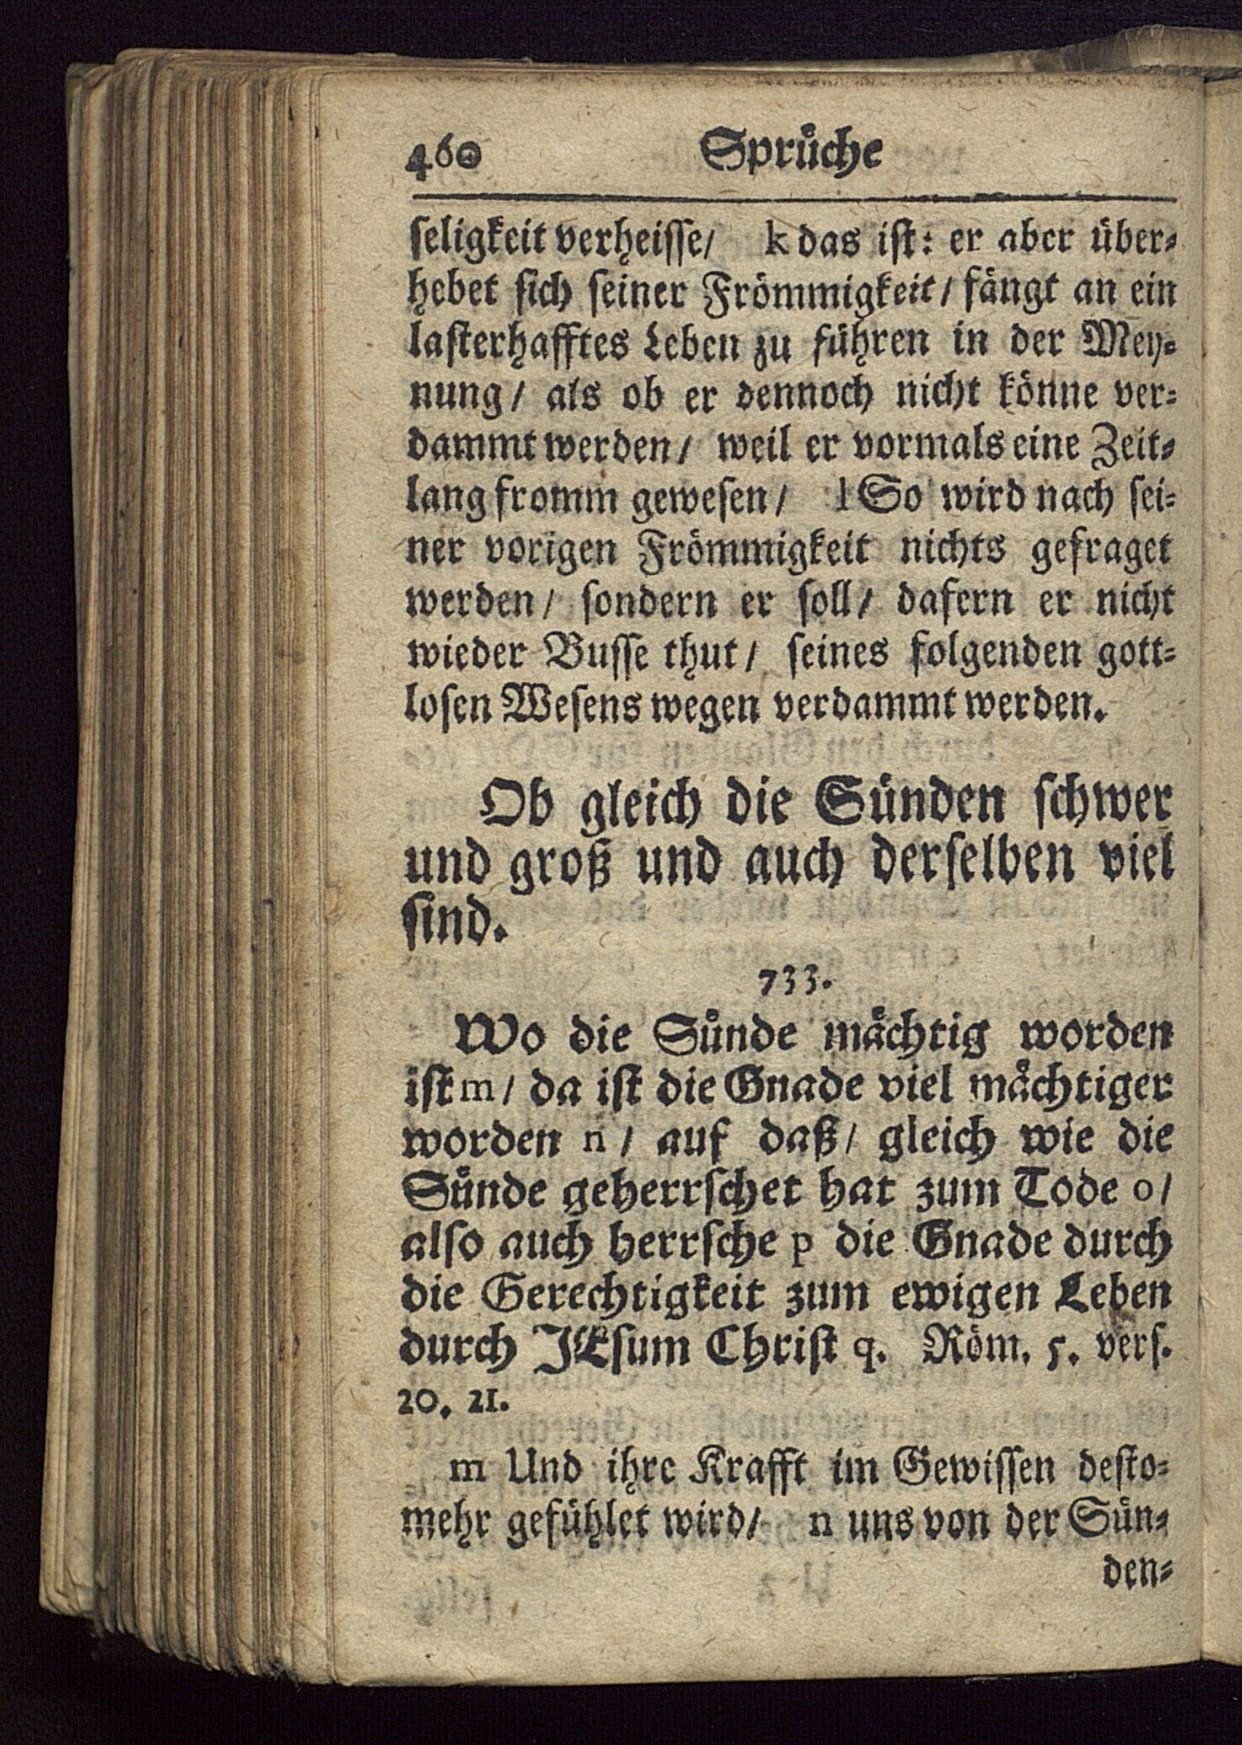 460 Sprüche
seligkeit verheisse/ k das ist: er aber über-
hebet sich seiner Frömmigkeit/ fängt an ein
lasterhafftes Leben zu führen in der Mey-
nung/ als ob er dennoch nicht könne ver-
dammt werden/ weil er vormals eine Zeit-
lang fromm gewesen/ l So wird nach sei-
ner vorigen Frömmigkeit nichts gefraget
werden/ sondern er soll/ dafern er nicht
wieder Busse thut/ seines folgenden gott-
losen Wesens wegen verdammt werden.
Ob gleich die Sünden schwer
und groß und auch derselben viel
sind.
733.
Wo die Sünde mächtig worden
ist m/ da ist die Gnade viel mächtiger
worden n/ auf daß/ gleich wie die
Sünde geherrschet hat zum Tode o/
also auch herrsche p die Gnade durch
die Gerechtigkeit zum ewigen Leben
durch JEsum Christ q. Röm. 5. vers.
20. 21.
m Und ihre Krafft im Gewissen desto-
mehr gefühlet wird/ n uns von der Sün-
den-